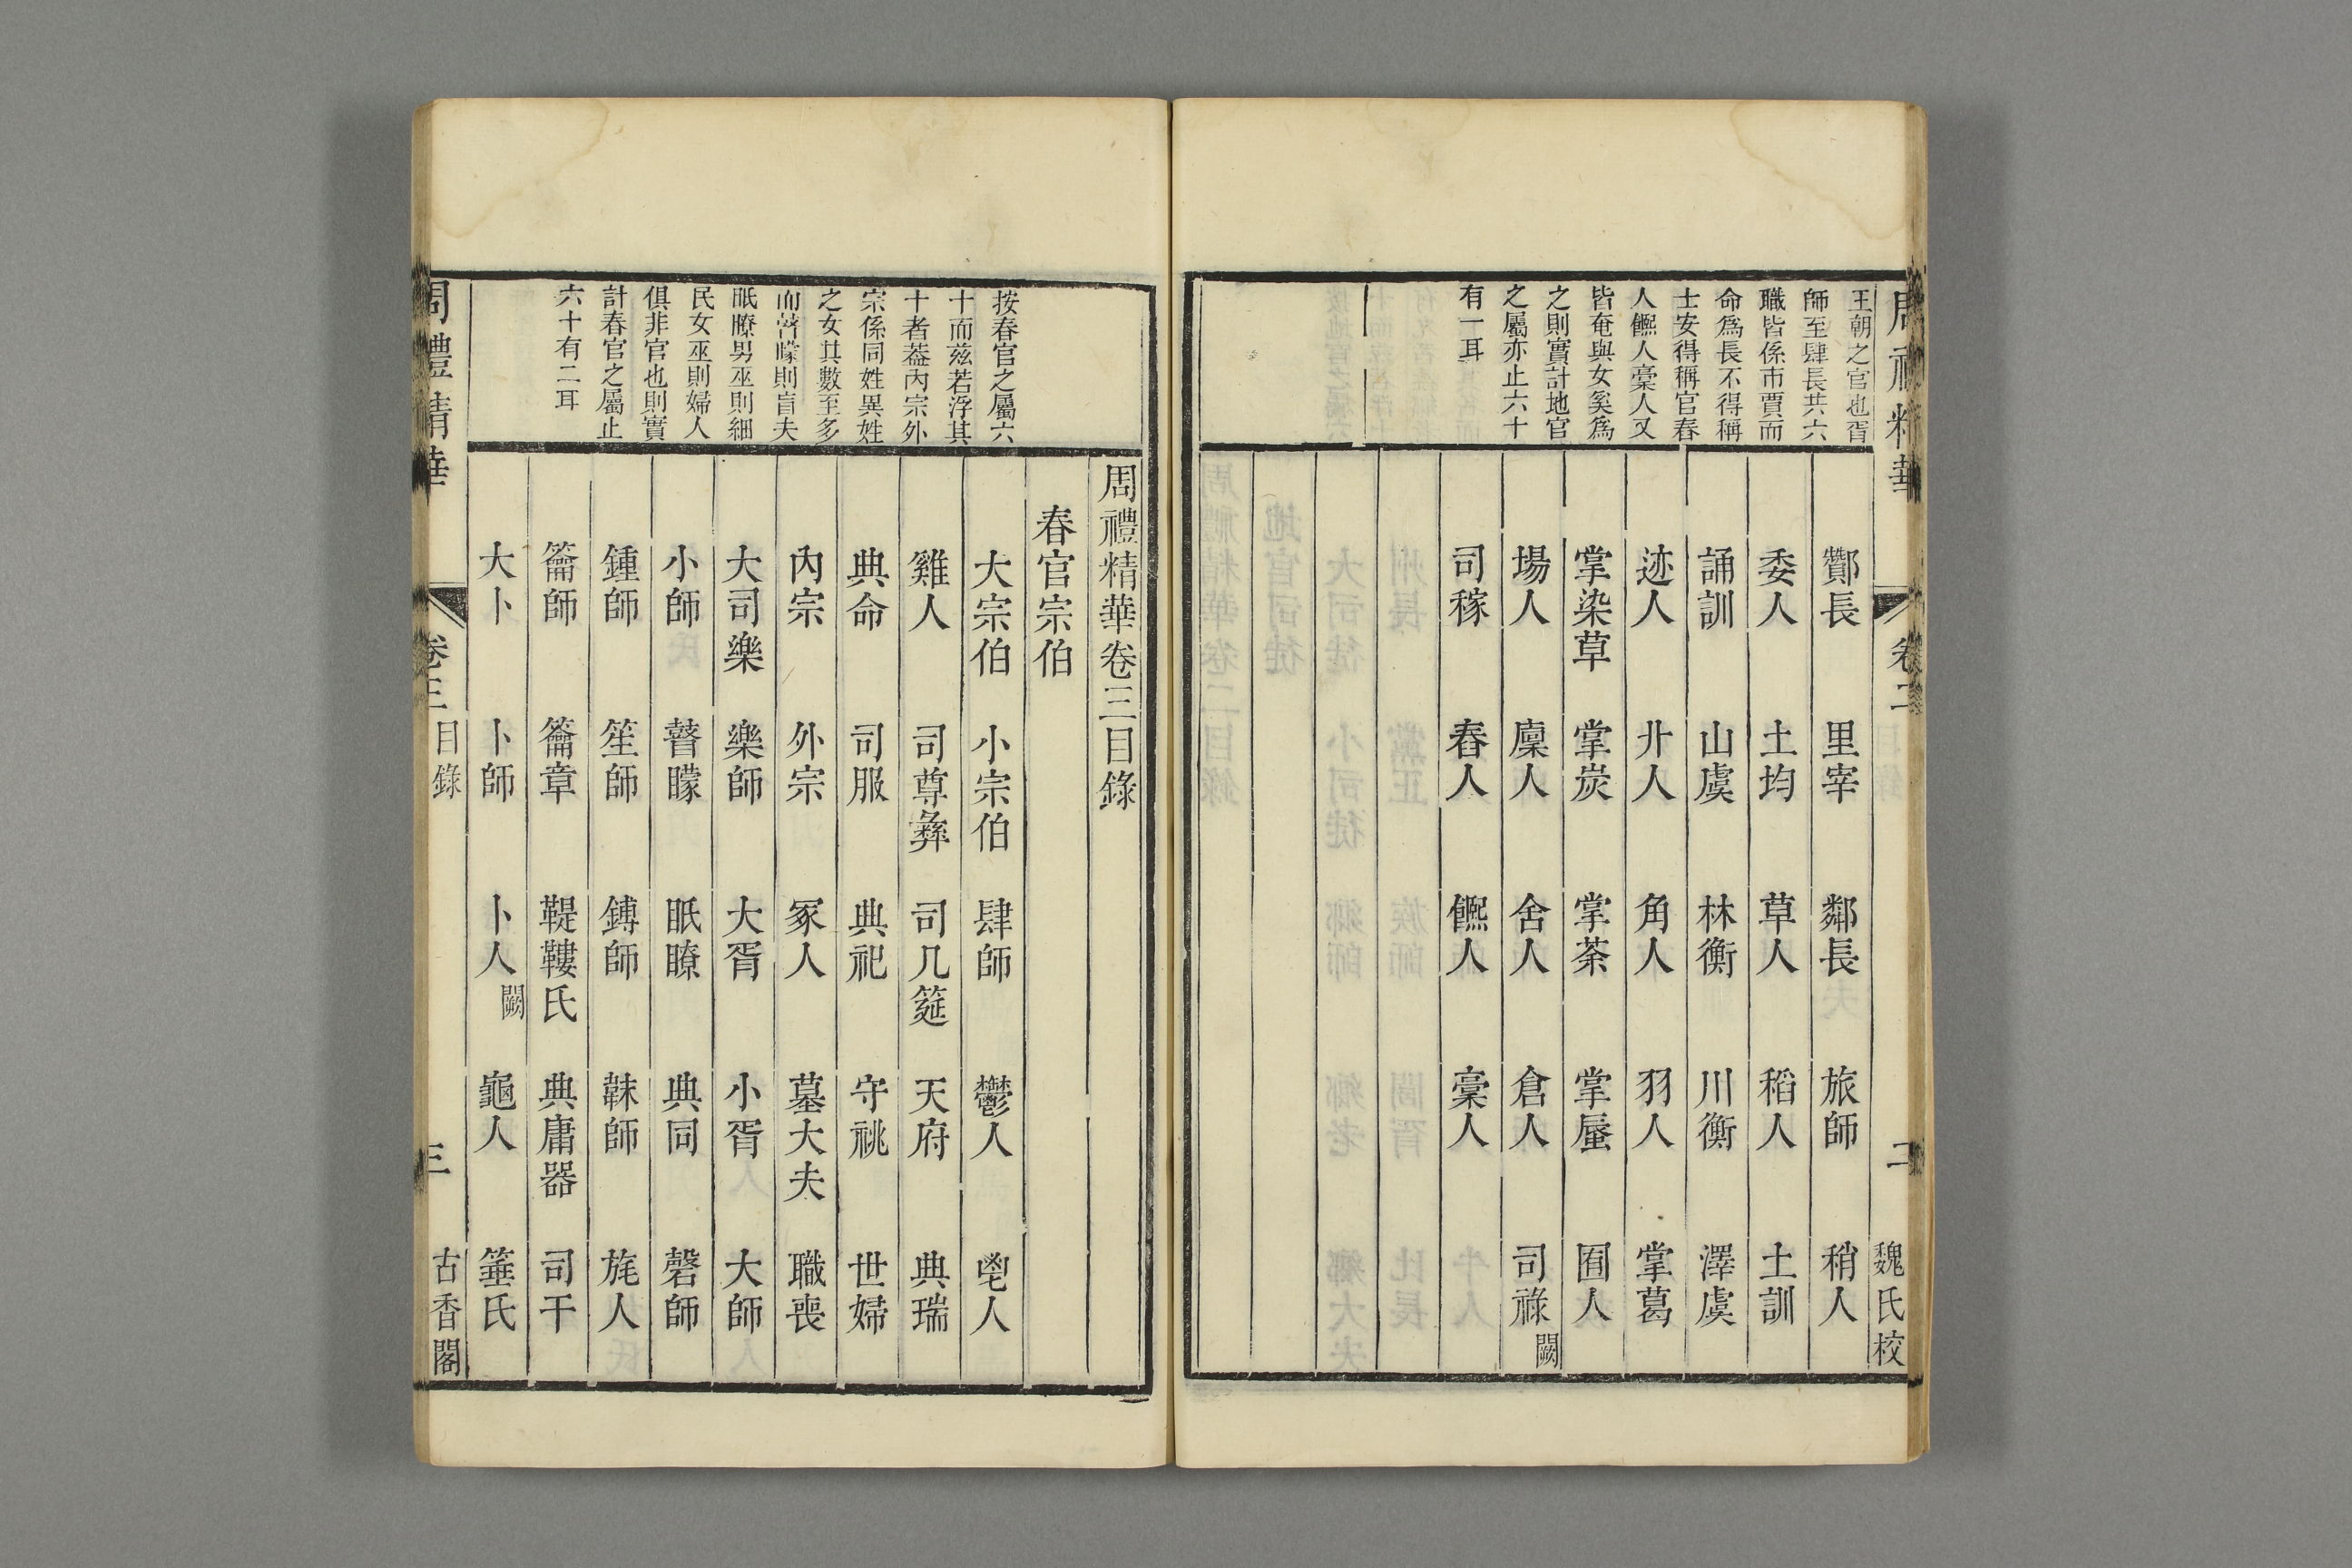 周禮精華
卷二
二
魏氏校
王朝之官也胥
師至肆長共六
職皆係市賈而
命爲長不得稱
士安得稱官舂
人饎人槀人又
皆奄與女奚爲
之則實計地官
之屬亦止六十
有一耳
酇長 里宰 鄰長 旅師 稍人
委人 土均 草人 稻人 土訓
誦訓 山虞 林衡 川衡 澤虞
迹人 廾人 角人 羽人 掌葛
掌染草 掌炭 掌荼 掌蜃 囿人
場人 廩人 舍人 倉人 司祿闕
司稼 舂人 饎人 槀人
按春官之屬六
十而兹若浮其
十者葢內宗外
宗係同姓異姓
之女其數至多
而瞽矇則盲夫
眂瞭男巫則細
民女巫則婦人
俱非官也則實
計春官之屬止
六十有二耳
周禮精華卷三目錄
春官宗伯
大宗伯 小宗伯 肆師 鬱人 鬯人
雞人 司尊彝 司几筵 天府 典瑞
典命 司服 典祀 守祧 世婦
內宗 外宗 冢人 墓大夫 職喪
大司樂 樂師 大胥 小胥 大師
小師 瞽矇 眂瞭 典同 磬師
鍾師 笙師 鎛師 韎師 旄人
籥師 籥章 鞮鞻氏 典庸器 司干
大卜 卜師 卜人闕 龜人 菙氏
周禮精華
卷三
目錄
三
古香閣